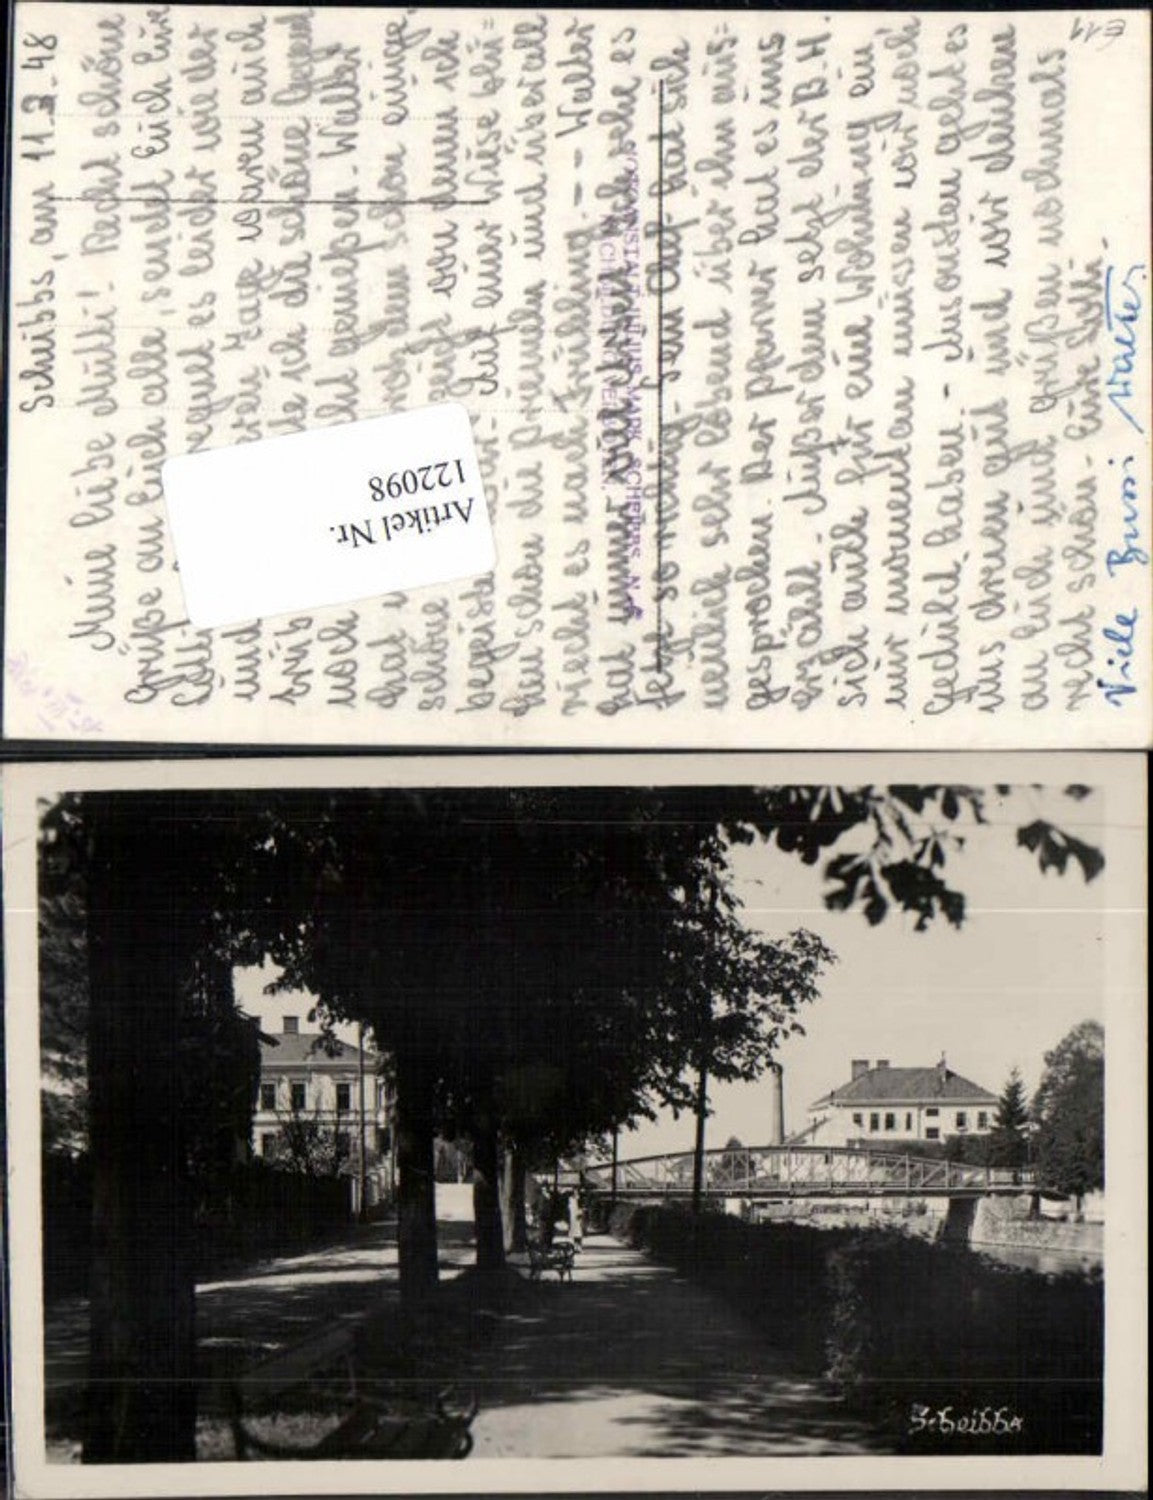 Scheibbs, am 11.III.48
Meine liebe Mutti! Recht schöne
Grüße an Euch alle, sendet Euch Eure
regnet es leider wieder
und Tage waren auch
trüb ich die schöne Gegend
noch nicht genießen. Walter
hat schon einige
schöne von denn ich
begeistert Auf einer Wiese blü=
hen schon die Primeln und überall
riecht es nach Frühling. - - Walter
hat immer es
sehr so Sein Chef hat sich
neulich sehr lobend über ihn aus=
gesprochen. Der Pfarrer hat es uns
erzählt. Außerdem setzt der B.H.
sich auch für eine Wohnung ein,
nur momentan müssen wir noch
Geduld haben - Ansonsten geht es
uns dreien gut und wir denken
an Euch und grüßen nochmals
recht schön. Eure Lotti.
Viele Bussi Walter.
E11
Artikel Nr.
122098
Scheibbs